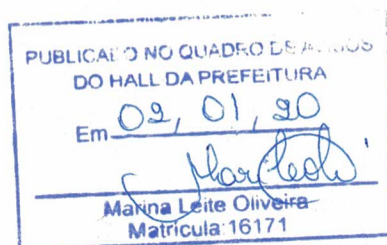 PUBLICADO NO QUADRO DE AVISOS
DO HALL DA PREFEITURA
Em 02, 01, 20
Marina Leite Oliveira
Matrícula:16171